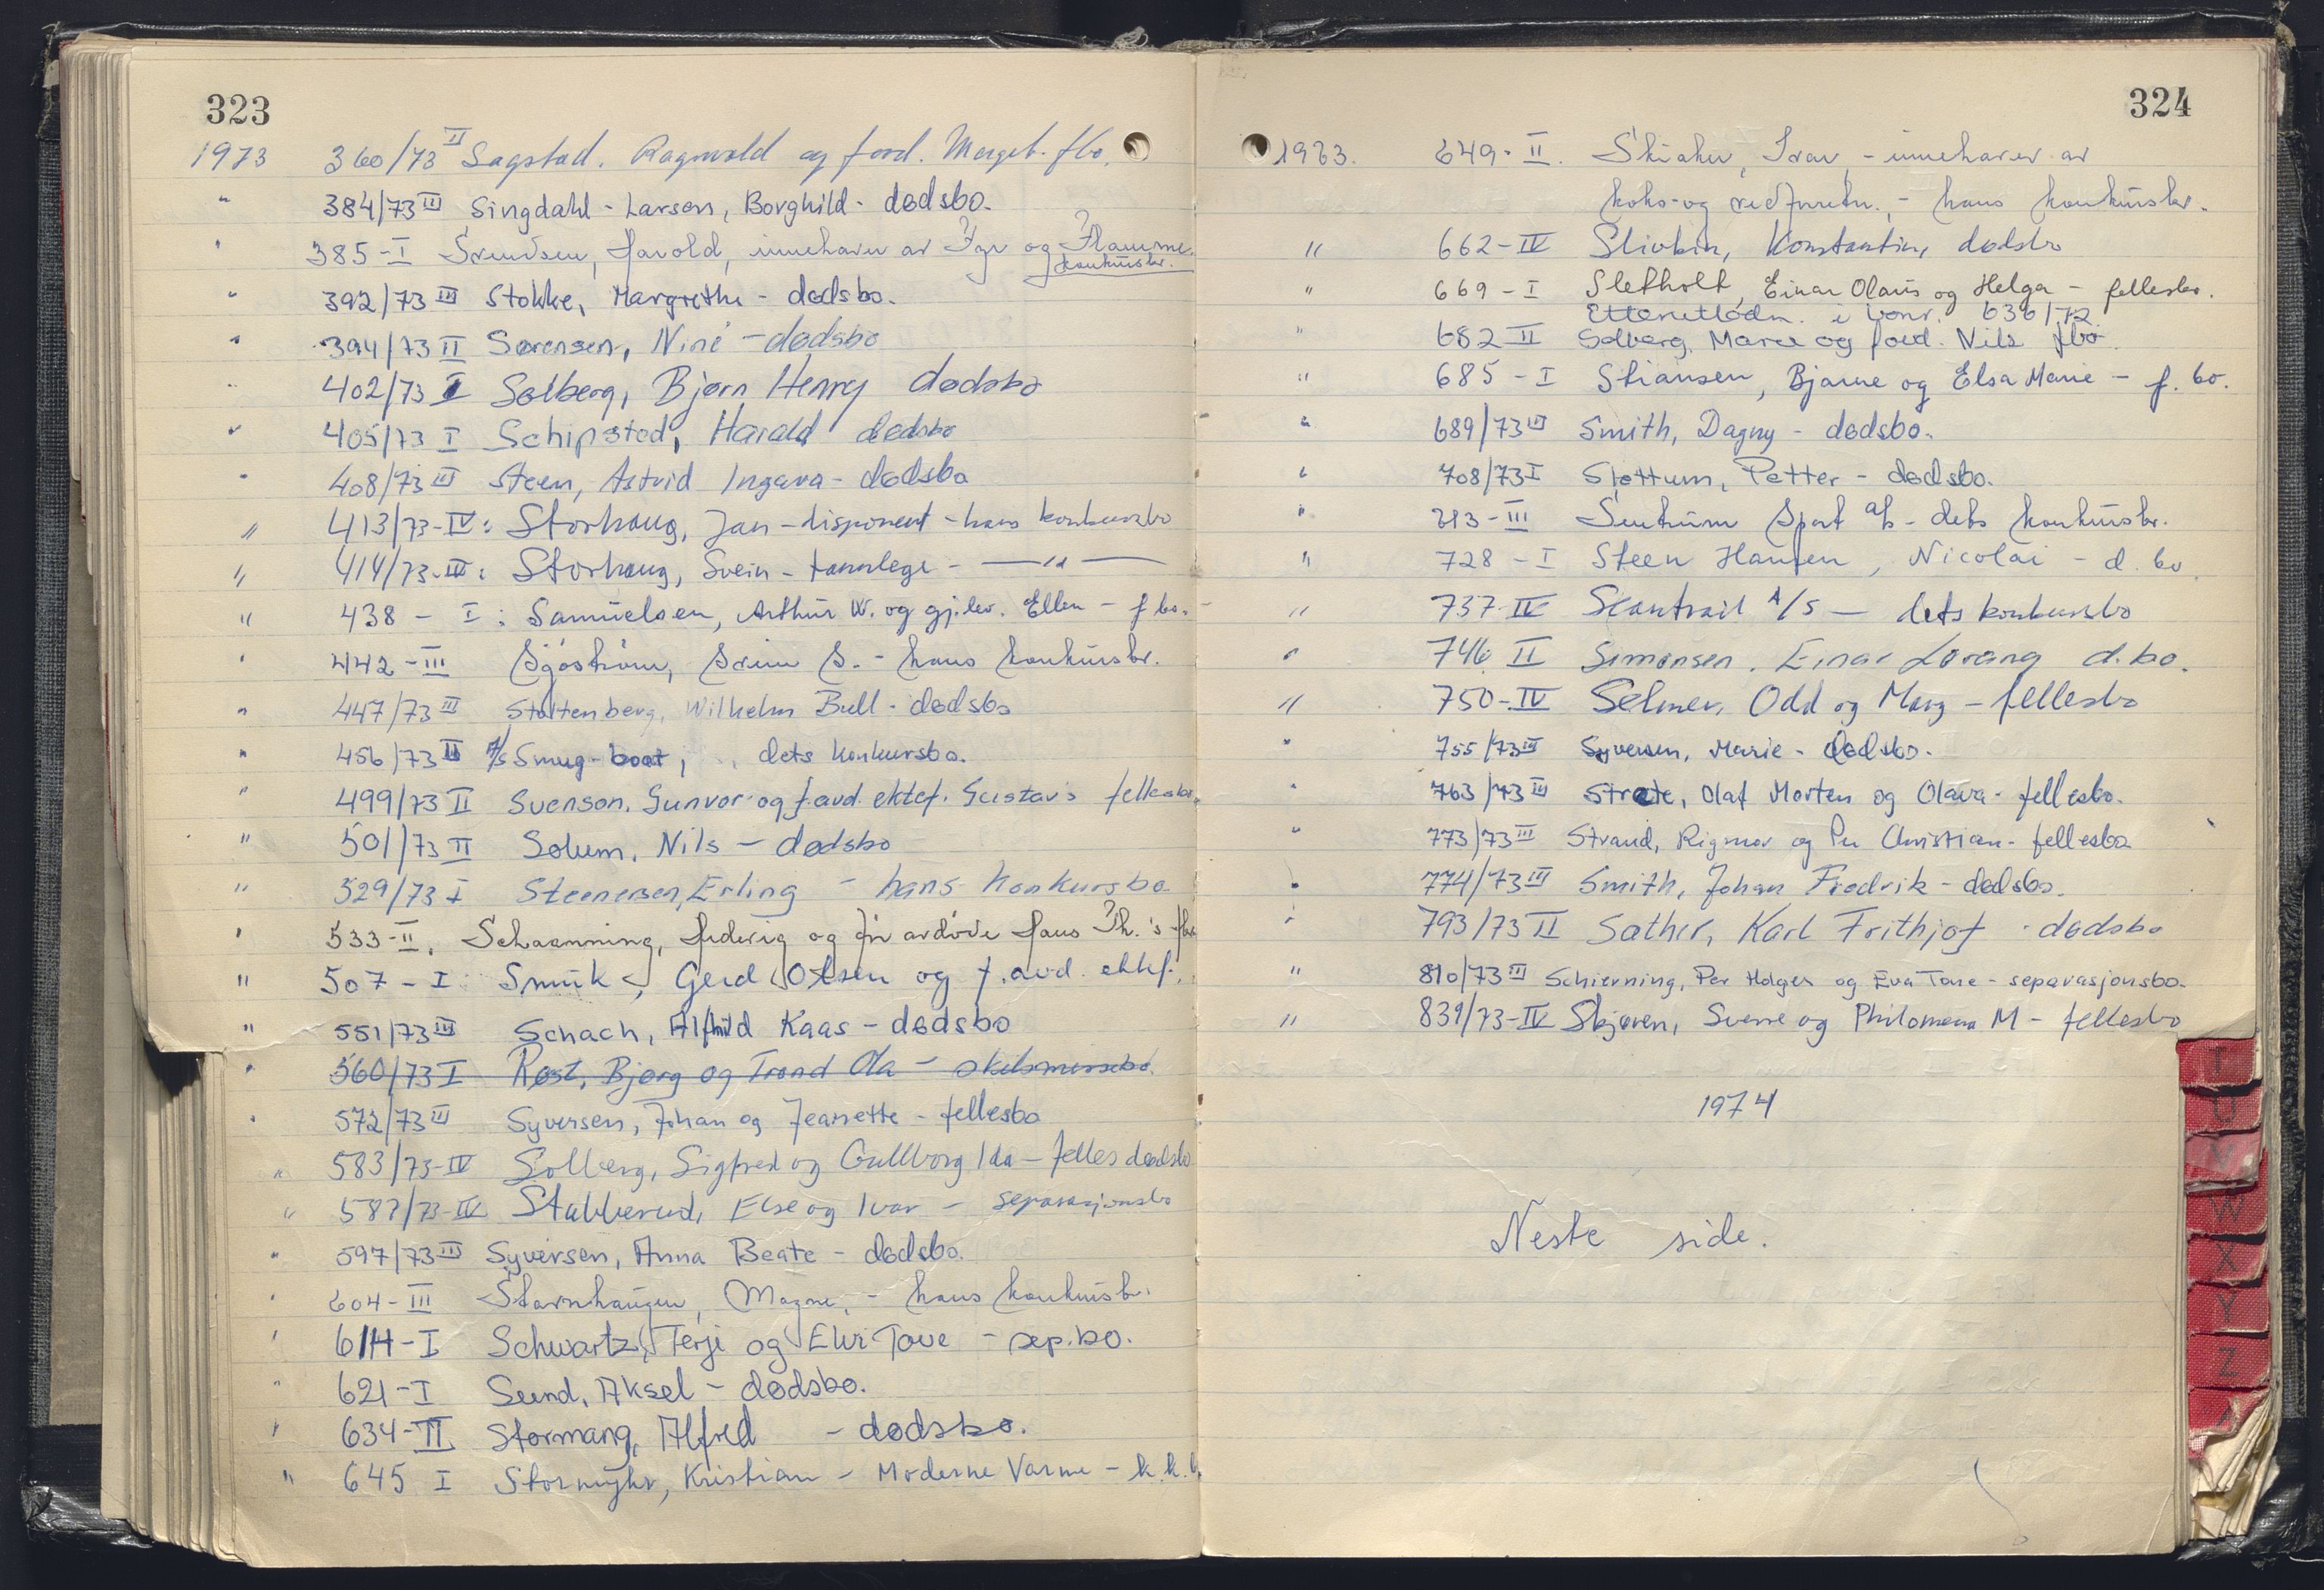 323
1973 360/73 II Sagstad. Ragnvald og ford. Marget. fbo.
" 384/73 III Singdahl-Larsen, Borghild - dødsbo.
" 385-I Svendsen, Harold, innehaver av Fyr og Flamme.
konkursbo.
" 392/73 III Stokke, Margrethe - dødsbo.
" 394/73 II Sørensen, Niné - dødsbo
" 402/73 I Solberg, Bjørn Henry dødsbo
" 405/73 I Schipsted, Harald dødsbo
" 408/73 III Steen, Astrid Ingara - dødsbo
" 413/73-IV: Storhaug, Jan - disponent - hans konkursbo
" 414/73-IV: Storhaug, Svein - tannlege - — " —
" 438 - I: Samuelsen, Arthur W. og gj.lev. Ellen - f bo.
" 442-III Sjöström, S. - hans konkursbo.
" 447/73 III Stoltenberg, Wilhelm Bull - dødsbo
" 456/73 II A/S Smug-boat, dets konkursbo.
" 499/73 II Svenson, Gunvor og f.avd. ektef. Gustav's fellesbo.
" 501/73 II Solum, Nils - dødsbo
" 529/73 I Steenersen, Erling - hans konkursbo
" 533-II. Schaanning, Hedevig og før avdøde Hans Th.'s fbo
" 507-I Smuk, Gerd Olsen og f.avd. ektef.
" 551/73 III Schach, Alfhild Kaas - dødsbo
" 560/73 I Røst, Bjørg og Trond Ola - skilsmissebo.
" 572/73 III Syversen, Johan og Jeanette - fellesbo
" 583/73-IV Solberg, Sigfred og Gullborg Ida - felles dødsbo
" 587/73-IV Stabberud, Else og Ivar - separasjonsbo
" 597/73 III Syversen, Anna Beate - dødsbo.
" 604-III Magne, - hans konkursbo.
" 614-I Schwartz, Terje og Elvi Tove - sep.bo.
" 621-I Sund, Aksel - dødsbo.
" 634-II Stormang, Alfred - dødsbo.
" 645 I Stormyhr, Kristian - Moderne Varme - k.k.b
324
1973. 649-II. Ivar, - innehaver av
koks- og vedforretn., - hans konkursbo.
" 662-IV Slivkin, Konstantin, dødsbo
" 669-I Sletholt, Einar Olaus og Helga - fellesbo.
i bonr. 636/72.
" 682 II Solberg, Marie og ford. Nils fbo.
" 685-I Stiansen, Bjarne og Elsa Marie - f. bo.
" 689/73 III Smith, Dagny - dødsbo.
" 708/73 I Sjøttum, Petter - dødsbo.
" 713-III Sentrum Sport a/s - dets konkursbo.
" 728-I Steen Hansen, Nicolai - d. bo.
" 737-IV Scantrail A/S — dets konkursbo
" 746 II Simonsen. Einar Lorang d.bo.
" 750-IV Selmer, Odd og Marg - fellesbo
" 755/73 III Syversen, Marie - dødsbo.
" 763/73 III Stræte, Olaf Morten og Olava - fellesbo.
" 773/73 III Strand, Rigmor og Per Christian - fellesbo
" 774/73 III Smith, Johan Fredrik - dødsbo.
" 793/73 II Sæther, Karl Frithjof - dødsbo
" 810/73 III Schierning, Per Holger og Eva Tone - separasjonsbo.
" 839/73-IV Skjæren, Sverre og Philomena M - fellesbo
1974
Neste side.
T
U
V
W
X
Y
Z